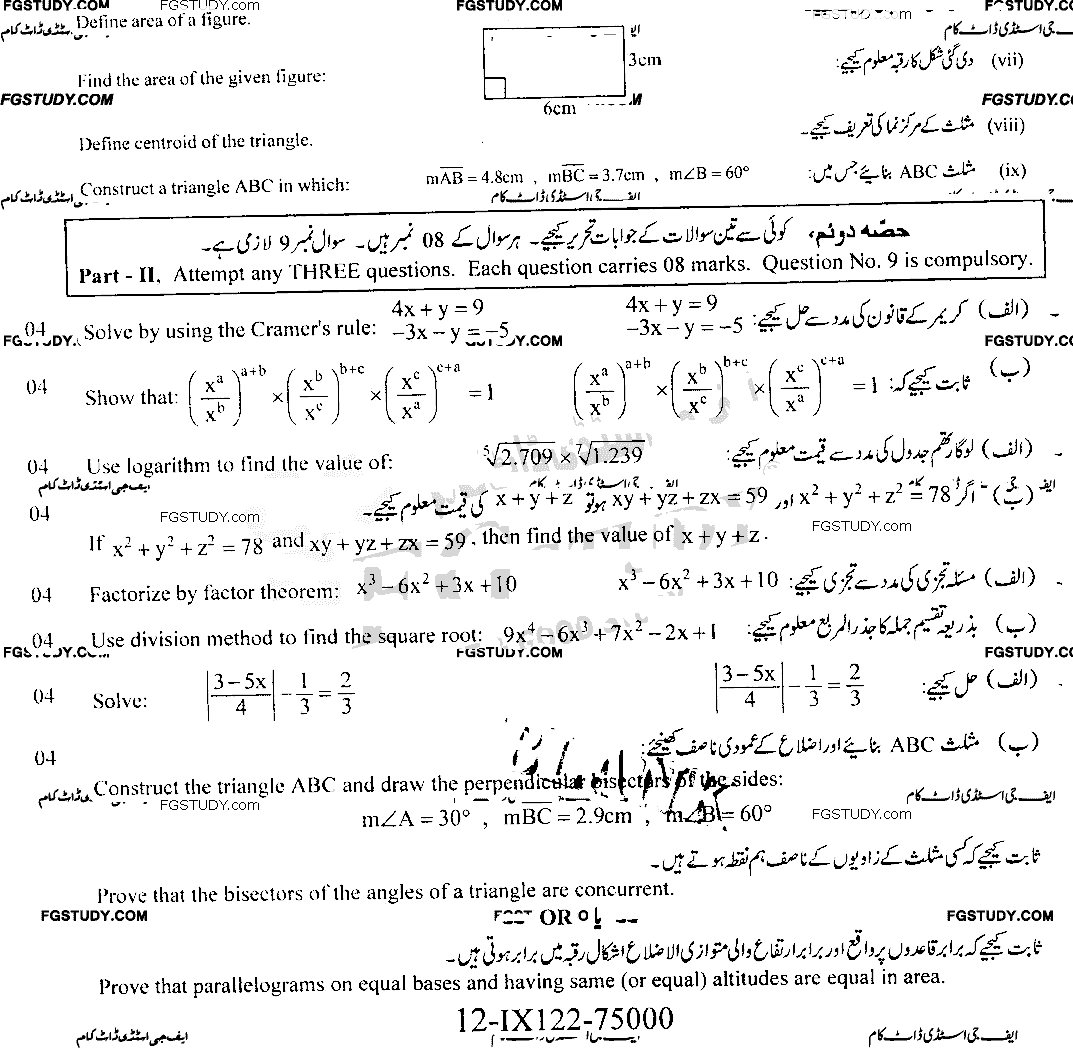 FGSTUDY.COM FGSTUDY.COM
Define area of a figure.
ڈاٹ کام جی اسٹڈی ڈاٹ کام
3cm
(vii) دی گئی شکل کا رقبہ معلوم کیجیے:
Find the area of the given figure:
FGSTUDY.COM 6cm
(viii) مثلث کے مرکز نما کی تعریف کیجیے۔
Define centroid of the triangle.
(ix) مثلث ABC بنائیے جس میں:
Construct a triangle ABC in which: mAB = 4.8cm , mBC = 3.7cm , m∠B = 60°
ایف جی اسٹڈی ڈاٹ کام
حصّہ دوئم، کوئی سے تین سوالات کے جوابات تحریر کیجیے۔ ہر سوال کے 08 نمبر ہیں۔ سوال نمبر 9 لازمی ہے۔
Part - II, Attempt any THREE questions. Each question carries 08 marks. Question No. 9 is compulsory.
(الف) کریمر کے قانون کی مدد سے حل کیجیے: 4x + y = 9 −3x − y = −5
04 Solve by using the Cramer's rule: 4x + y = 9 −3x − y = −5
(ب) ثابت کیجیے کہ: (x^a/x^b)^(a+b) × (x^b/x^c)^(b+c) × (x^c/x^a)^(c+a) = 1
04 Show that: (x^a/x^b)^(a+b) × (x^b/x^c)^(b+c) × (x^c/x^a)^(c+a) = 1
(الف) لوگارتھم جدول کی مدد سے قیمت معلوم کیجیے:
04 Use logarithm to find the value of: ⁵√2.709 × ⁷√1.239
ایف جی اسٹڈی ڈاٹ کام
(ب) اگر x² + y² + z² = 78 اور xy + yz + zx = 59 ہو تو x + y + z کی قیمت معلوم کیجیے۔
04 FGSTUDY.COM FGSTUDY.COM
If x² + y² + z² = 78 and xy + yz + zx = 59, then find the value of x + y + z.
(الف) مسئلہ تجزی کی مدد سے تجزی کیجیے: x³ − 6x² + 3x + 10
04 Factorize by factor theorem: x³ − 6x² + 3x + 10
(ب) بذریعہ تقسیم جملہ کا جذر المربع معلوم کیجیے:
04 Use division method to find the square root: 9x⁴ − 6x³ + 7x² − 2x + 1
FGSTUDY.COM
(الف) حل کیجیے: |3 − 5x / 4| − 1/3 = 2/3
04 Solve: |3 − 5x / 4| − 1/3 = 2/3
(ب) مثلث ABC بنائیے اور اضلاع کے عمودی ناصف کھینچئے:
04
Construct the triangle ABC and draw the perpendicular bisectors of the sides:
ایف جی اسٹڈی ڈاٹ کام
FGSTUDY.COM m∠A = 30° , mBC = 2.9cm , m∠B = 60° FGSTUDY.COM
ثابت کیجیے کہ کسی مثلث کے زاویوں کے ناصف ہم نقطہ ہوتے ہیں۔
Prove that the bisectors of the angles of a triangle are concurrent.
FGSTUDY.COM OR یا FGSTUDY.COM
ثابت کیجیے کہ برابر قاعدوں پر واقع اور برابر ارتفاع والی متوازی الاضلاع اشکال رقبہ میں برابر ہوتی ہیں۔
Prove that parallelograms on equal bases and having same (or equal) altitudes are equal in area.
12-IX122-75000
ایف جی اسٹڈی ڈاٹ کام ایف جی اسٹڈی ڈاٹ کام